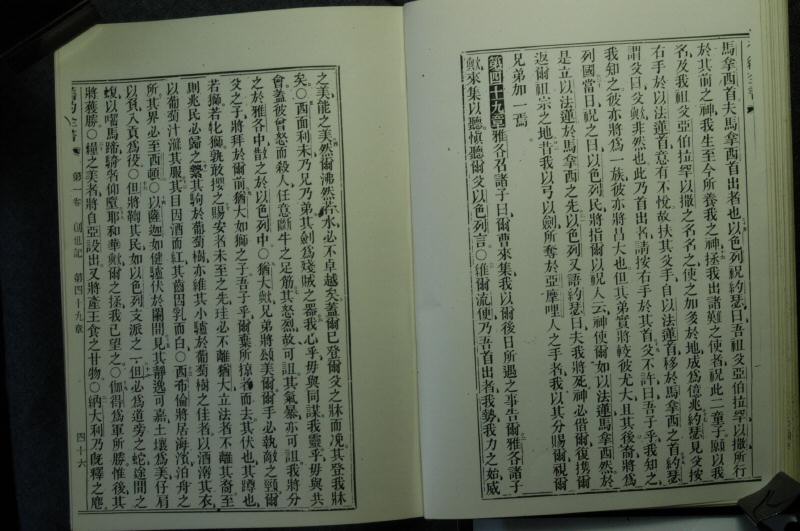 馬拿西首夫馬拿西首出者也以色列祝約瑟曰吾祖父亞伯拉罕以撒所行
於其前之神我生至今所養我之神拯我出諸難之使者祝此二童子願以我
名及我祖父亞伯拉罕以撒之名名之使之加多於地成為億兆約瑟見父按
右手於以法蓮首意有不悅故扶其父手自以法蓮首移於馬拿西之首約瑟
謂父曰父歟非然也此乃首出者請按右手於其首父不許曰吾子乎我知之
我知之彼亦將為一族彼亦將昌大也但其弟實將較彼尤大且其後裔將為
列國當日祝之曰以色列民將指爾以祝人云神使爾如以法蓮馬拿西然於
是立以法蓮於馬拿西之先以色列又語約瑟曰夫我將死神必偕爾復攜爾
返爾祖宗之地昔我以弓以劍所奪於亞摩哩人之手者我以其分賜爾視爾
兄弟加一焉
第四十九章雅各召諸子曰爾曹來集我以爾後日所遇之事告爾雅各諸子
歟來集以聽慎聽爾父以色列言○流便乃吾首出者我勢我力之始威
之美能之美然爾沸然若水必不卓越矣蓋爾已登爾父之牀而浼其登我牀
矣○西面利未乃兄乃弟其劍為殘賊之器我心乎毋與同謀我靈乎毋與共
會蓋彼曾怒而殺人任意斷牛之足筋其怒烈故可詛其氣暴亦可詛我將分
之於雅各中散之於以色列中○猶大歟兄弟將頌美爾爾手必執敵之頸爾
父之子將拜於爾前猶大如獅之子吾子乎爾棄所掠者而去其伏也其蹲也
若獅若牝獅孰敢攖之賜安者未至之先珪必不離猶大立法者不離其裔至
則兆民必歸之繫其駒於葡萄樹亦維其小驢於葡萄樹之佳者以酒澣其衣
以葡萄汁滌其服其目因酒而紅其齒因乳而白○西布倫將居海濱泊舟之
所其界必至西頓○以薩迦如健驢伏於闌間見其靜逸可嘉土壤為美仔肩
以負入貢為役○但將鞫其民如以色列支派之一但必為道旁之蛇途間之
蝮以嚙馬蹄騎者仰墮耶和華歟爾之拯我已望之○伽得為軍所勝惟後其
將獲勝○糧之美者將自亞設出又將產王食之甘物○納大利乃旣釋之麀
舊約全書 第一卷 創世記 第四十九章 四十六